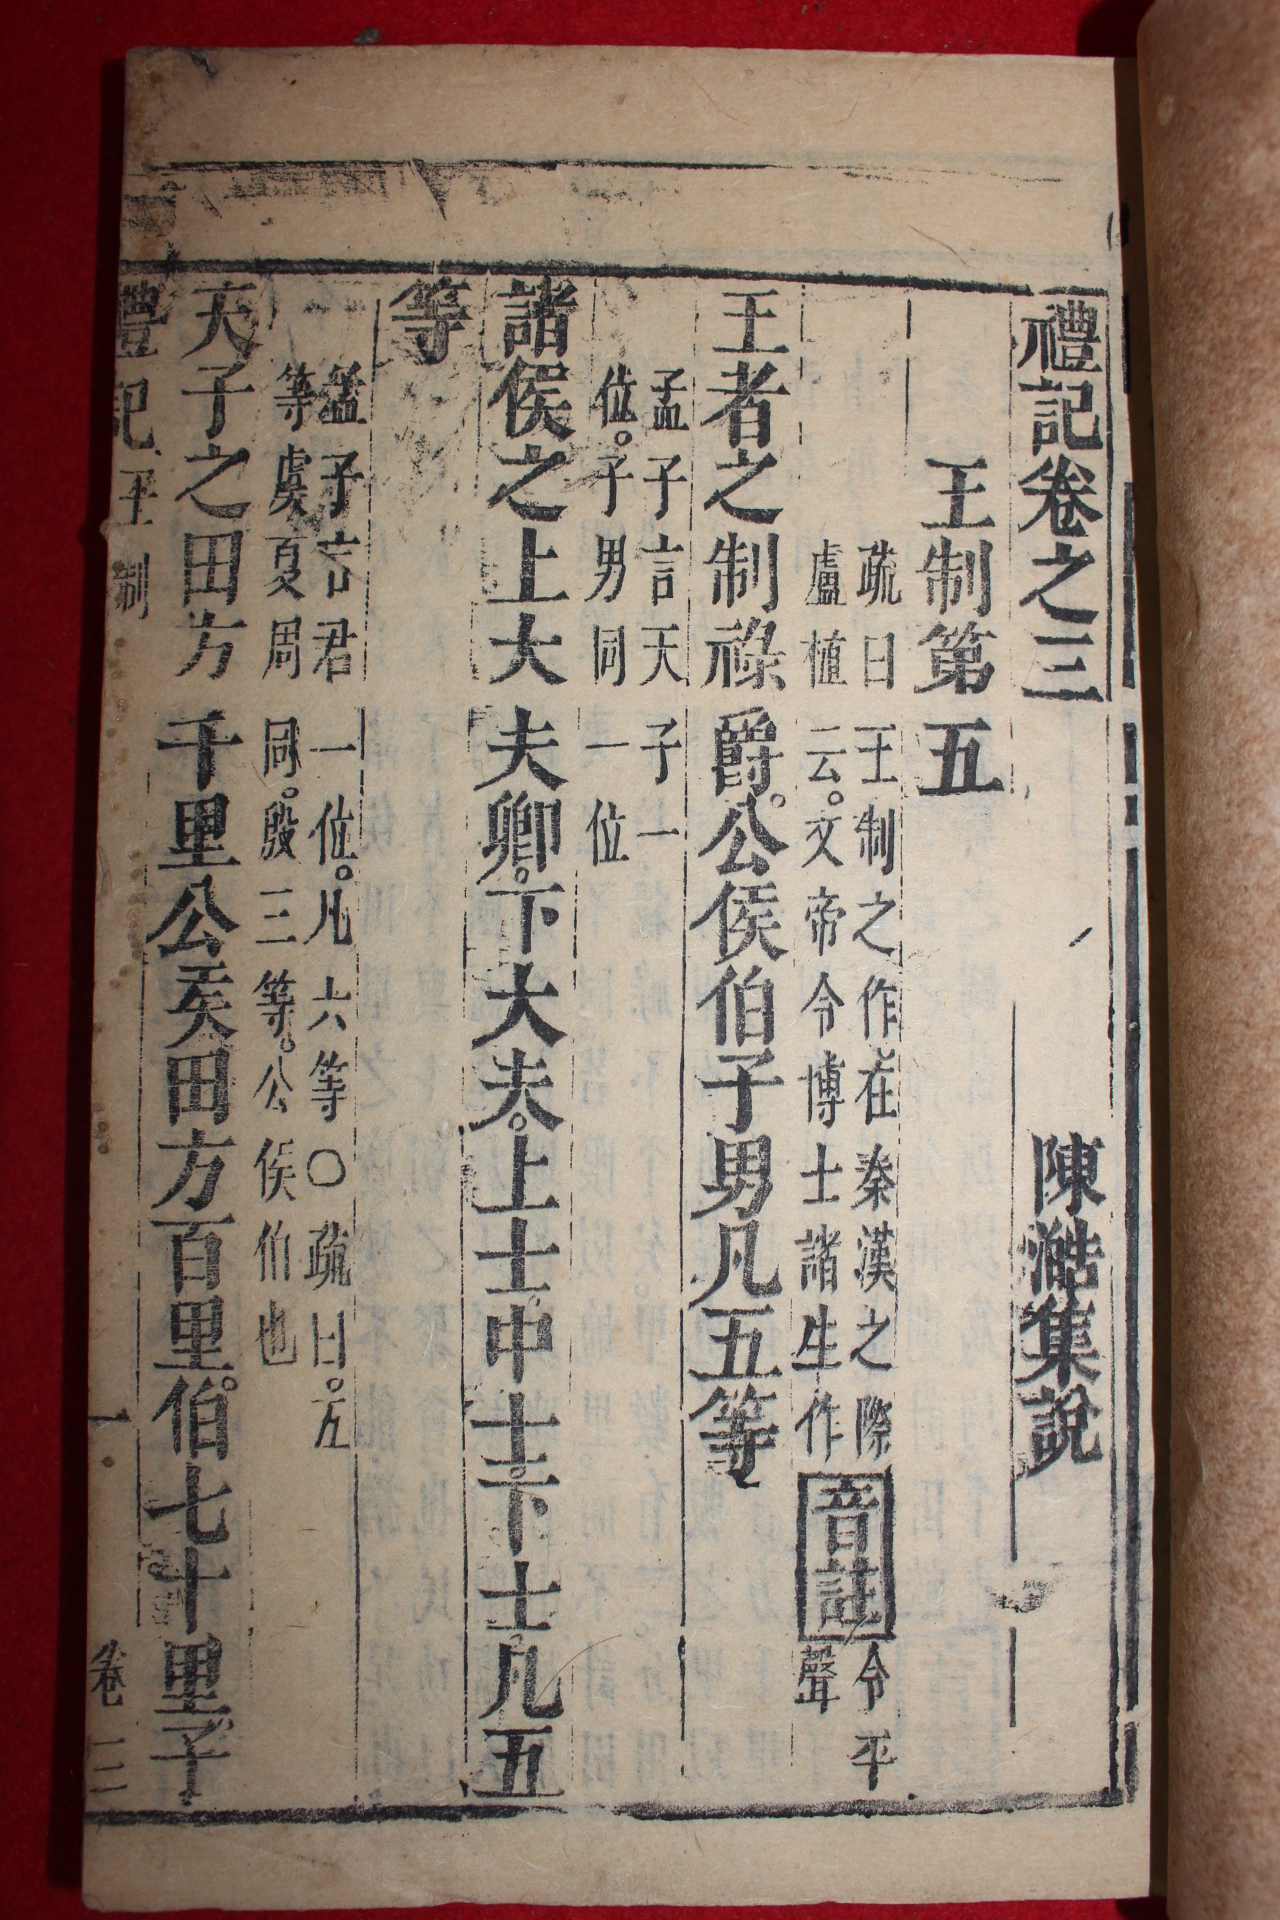 禮記卷之三 陳澔集說
王制第五
疏曰王制之作在秦漢之際
盧植云文帝令博士諸生作
音註
令平
聲
王者之制祿爵公侯伯子男凡五等
孟子言天子一
位子男同一位
諸侯之上大夫卿下大夫上士中士下士凡五
等
孟子言君一位凡六等○疏曰五
等虞夏周同殷三等公侯伯也
天子之田方千里公矦田方百里伯七十里子
禮記 王制 一 卷三